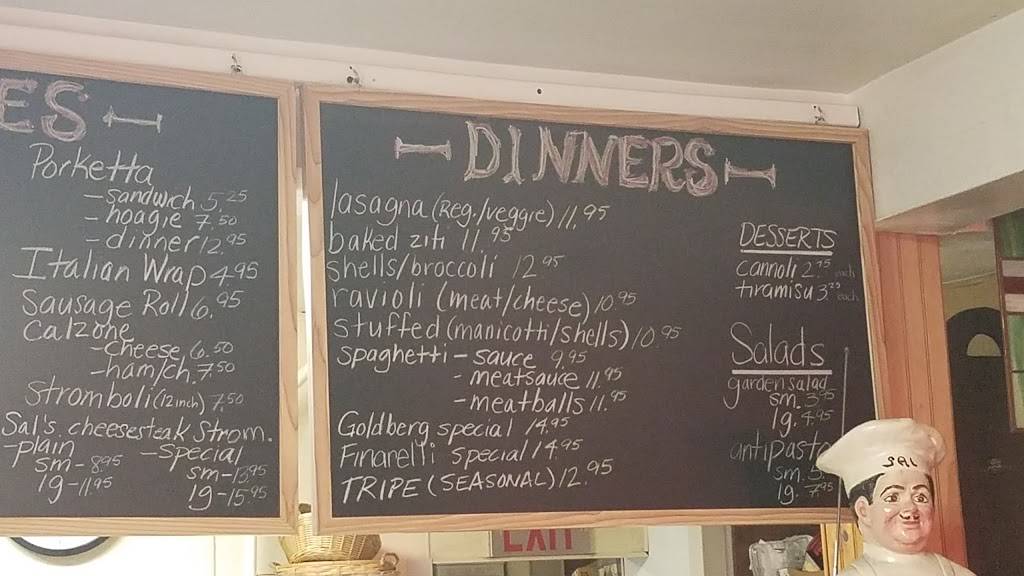 ES
Porketta
- sandwich 5.25
- hoagie 7.50
- dinner 12.95
Italian Wrap 4.95
Sausage Roll 6.95
Calzone
- cheese 6.50
- ham/ch. 7.50
Stromboli (12 inch) 7.50
Sal's cheesesteak Strom.
- plain - Special
sm - 8.95 sm - 13.95
lg - 11.95 lg - 15.95
DINNERS
lasagna (Reg./veggie) 11.95
baked ziti 11.95
shells/broccoli 12.95
ravioli (meat/cheese) 10.95
stuffed (manicotti/shells) 10.95
spaghetti - sauce 9.95
- meatsauce 11.95
- meatballs 11.95
Goldberg special 14.95
Finarelli special 14.95
TRIPE (SEASONAL) 12.95
DESSERTS
cannoli 2.75 each
tiramisu 3.25 each
Salads
garden salad
sm. 3.95
lg. 4.95
antipasto
sm.
lg. 7.95
SAL
EXIT